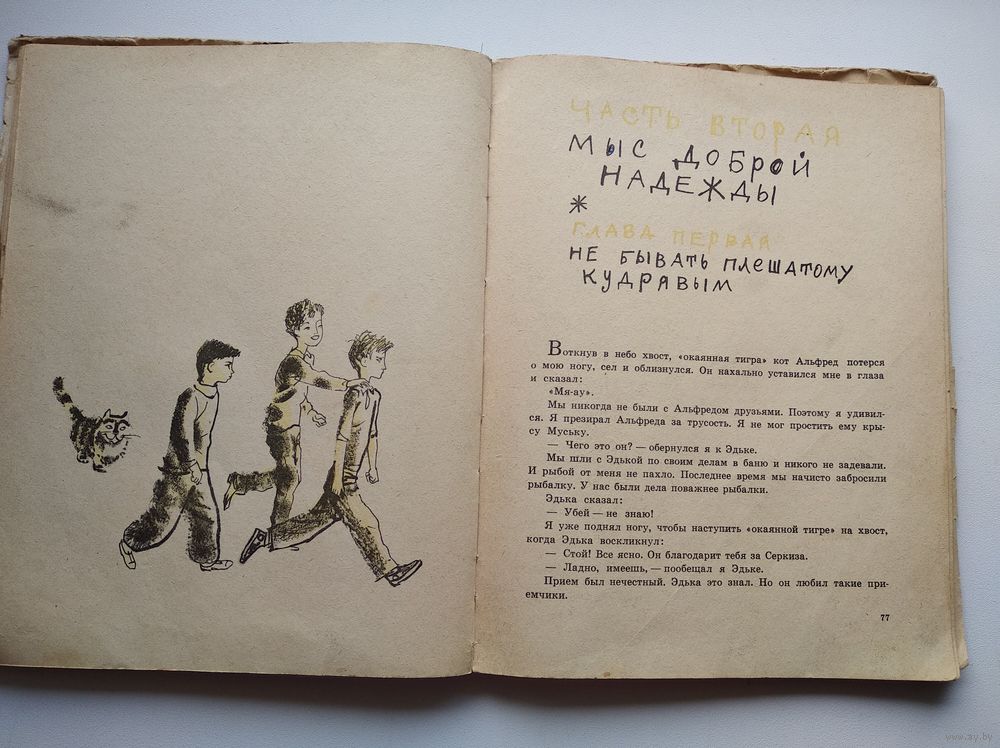 ЧАСТЬ ВТОРАЯ
МЫС ДОБРОЙ
НАДЕЖДЫ
*
ГЛАВА ПЕРВАЯ
НЕ БЫВАТЬ ПЛЕШАТОМУ
КУДРЯВЫМ
Воткнув в небо хвост, «окаянная тигра» кот Альфред потерся
о мою ногу, сел и облизнулся. Он нахально уставился мне в глаза
и сказал:
«Мя-ау».
Мы никогда не были с Альфредом друзьями. Поэтому я удивил-
ся. Я презирал Альфреда за трусость. Я не мог простить ему кры-
су Муську.
— Чего это он? — обернулся я к Эдьке.
Мы шли с Эдькой по своим делам в баню и никого не задевали.
И рыбой от меня не пахло. Последнее время мы начисто забросили
рыбалку. У нас были дела поважнее рыбалки.
Эдька сказал:
— Убей — не знаю!
Я уже поднял ногу, чтобы наступить «окаянной тигре» на хвост,
когда Эдька воскликнул:
— Стой! Все ясно. Он благодарит тебя за Серкиза.
— Ладно, имеешь, — пообещал я Эдьке.
Прием был нечестный. Эдька это знал. Но он любил такие при-
емчики.
77
www.ay.by